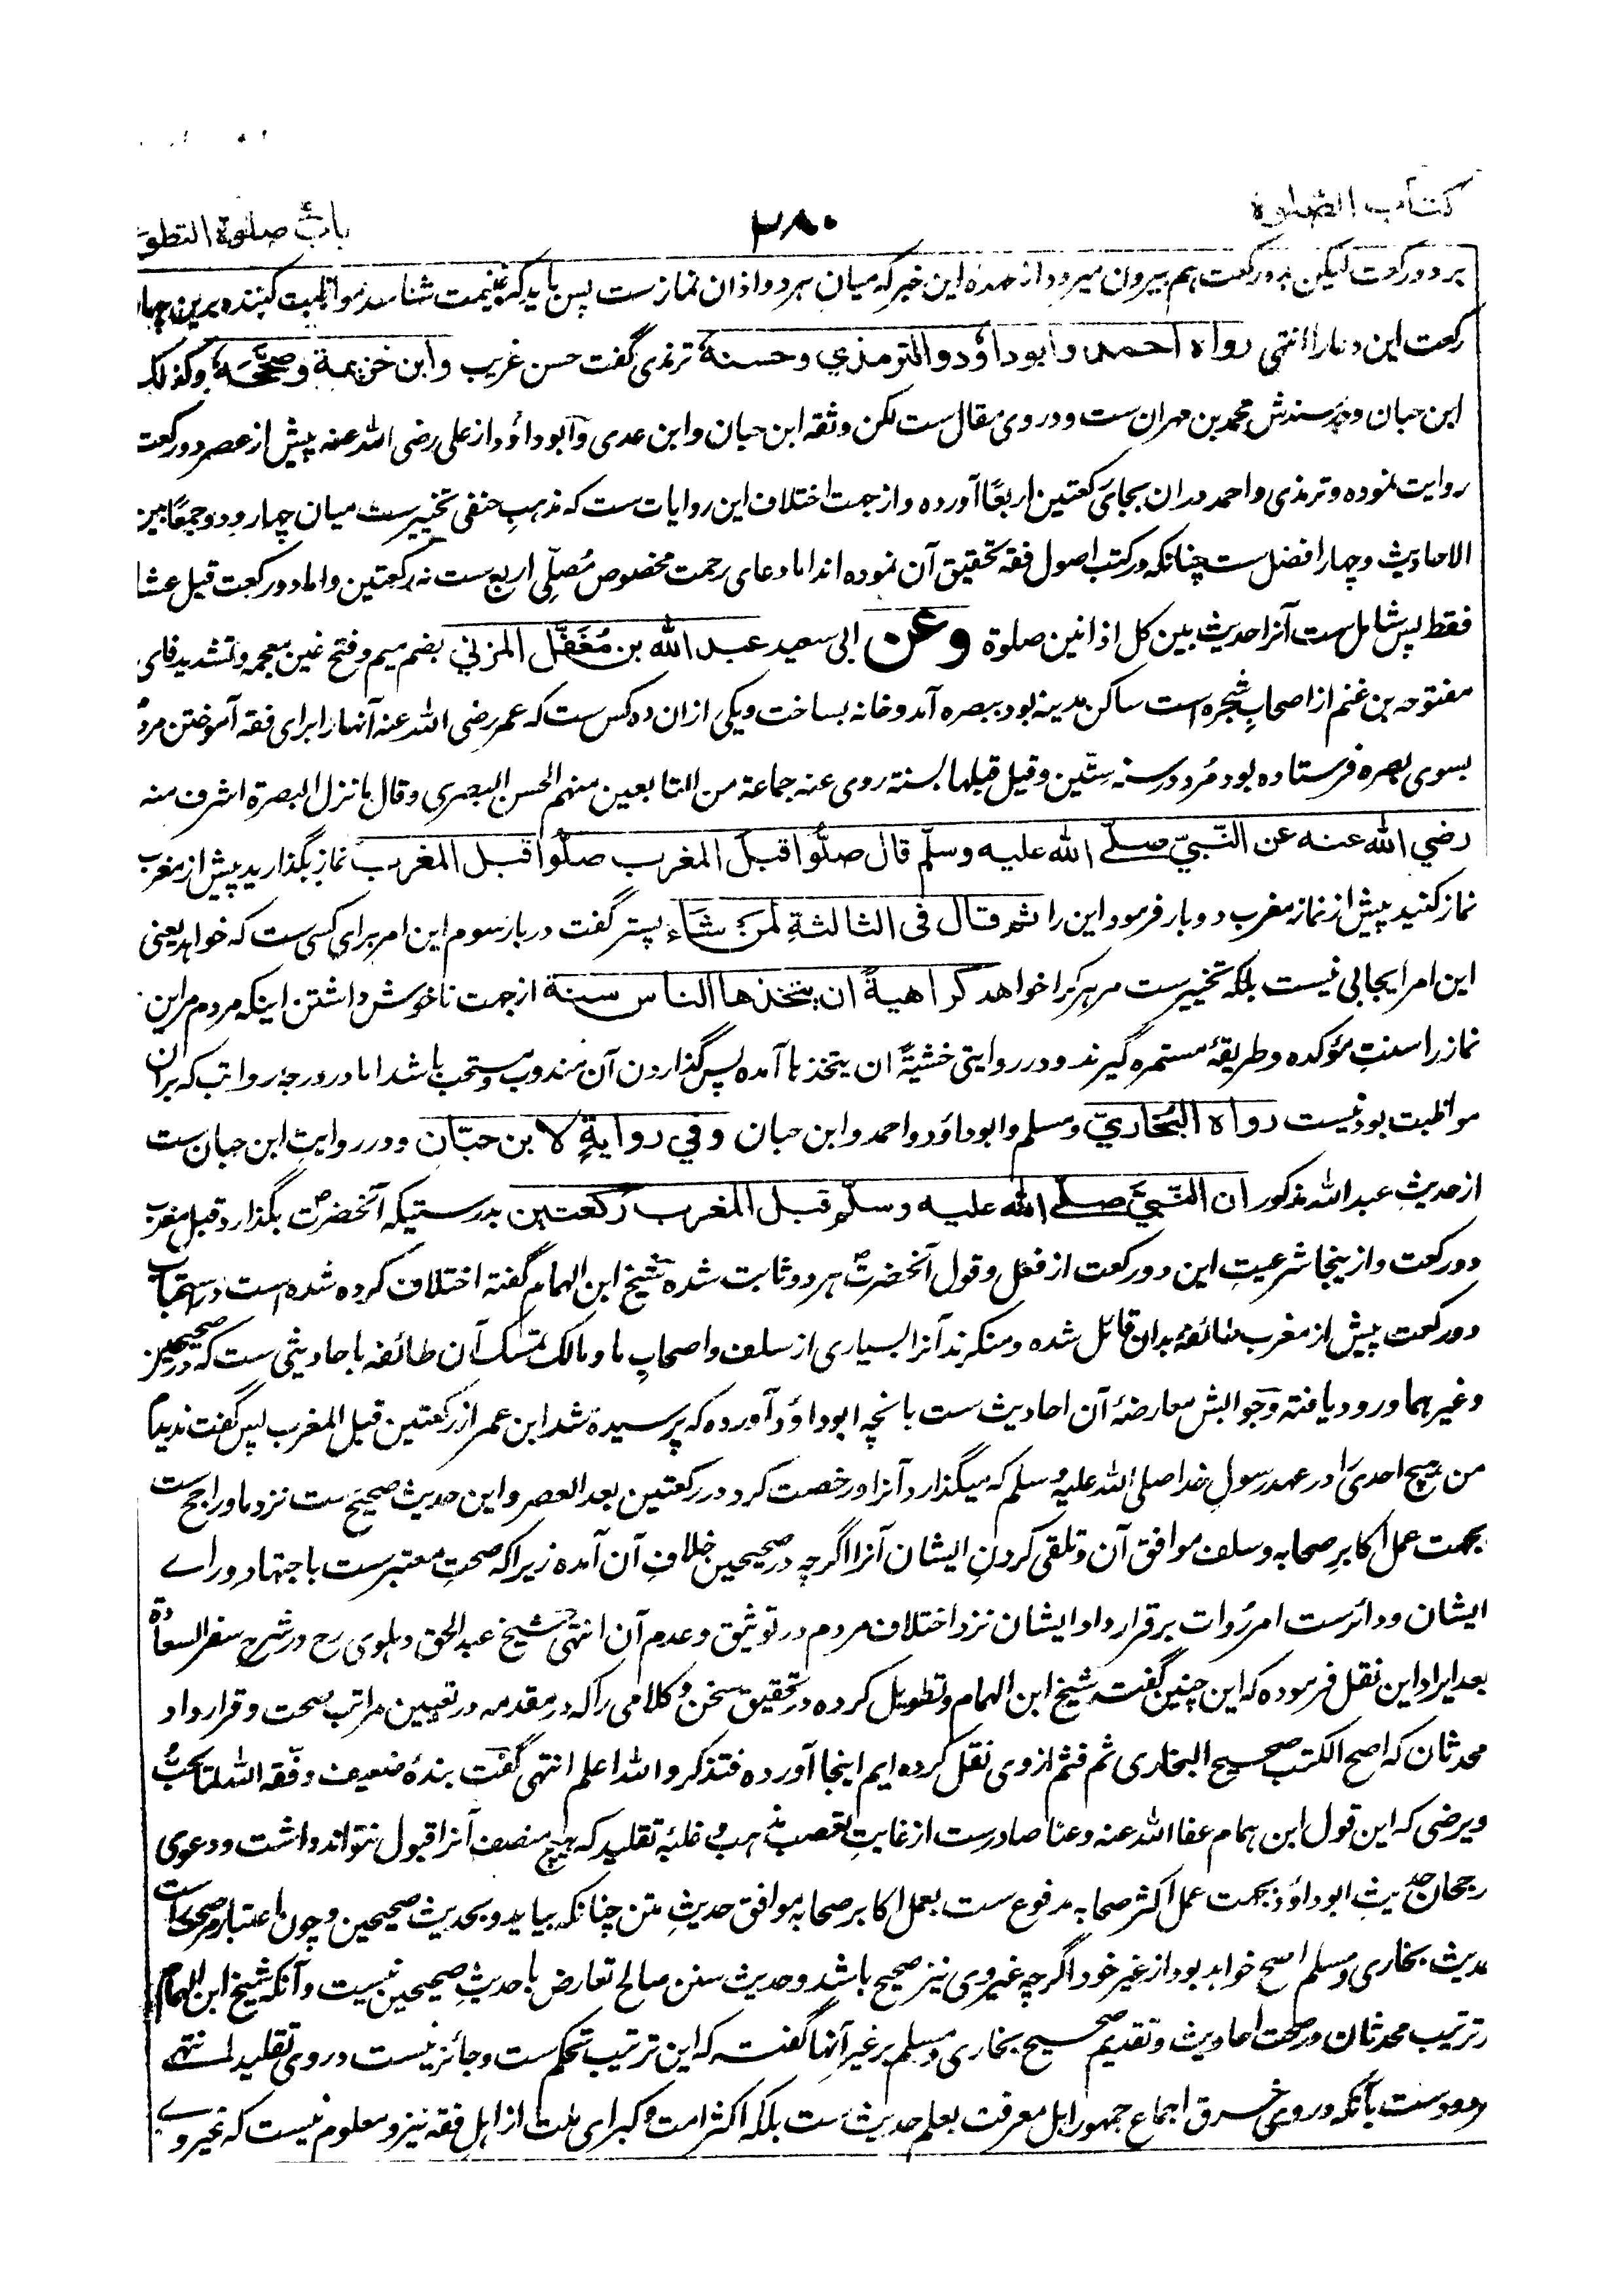 كتاب الصلوة
۲۸۰
باب صلوة التطوع
بر دو رکعت لیکن بدو رکعت هم بیرون میرود از عهدهٔ این خبر که میان هر دو اذان نماز ست پس باید که غنیمت شناسد مواظبت کننده برین چهار
رکعت این دعا را انتهی رواه احمد وابو داؤد والترمذي وحسنه ترمذی گفت حسن غریب وابن خزيمة وصححه وکذلک
ابن حبان و در سندش محمد بن مهران ست و در وی مقال ست لکن وثقه ابن حبان وابن عدی وابو داؤد از علی رضی الله عنه پیش از عصر دو رکعت
روایت نموده و ترمذی و احمد دران بجای رکعتین اربعًا آورده و از جهت اختلاف این روایات ست که مذهب حنفی تخییر ست میان چهار و دو جمعًا بین
الاحادیث و چهار افضل ست چنانکه در کتب اصول فقه تحقیق آن نموده اند اما دعای رحمت مخصوص مُصلّی اربع ست نه رکعتین و اما دو رکعت قبل عشا
فقط پس شامل ست آنرا حدیث بین کل اذانین صلوة وعن ابی سعید عبد الله بن مُغَفَّل المزني بضم میم و فتح غین معجمه و تشدید فای
مفتوحه بن غنم از اصحاب شجره است ساکن مدینه بود ببصره آمد و خانه بساخت و یکی ازان ده کس ست که عمر رضی الله عنه آنها را برای فقه آموختن مردم
بسوی بصره فرستاده بود مُرد در سنه ستّین وقیل قبلها بسنة روی عنه جماعة من التابعین منهم الحسن البصری وقال ما نزل البصرة اشرف منه
رضي الله عنه عن النّبيّ صلّے الله عليه وسلّم قال صلُّوا قبل المغرب صلّوا قبل المغرب نماز بگذارید پیش از مغرب
نماز کنید پیش از نماز مغرب دو بار فرمود این را ثم قال فی الثالثةِ لمن شاء پستر گفت در بار سوم این امر برای کسی ست که خواهد یعنی
این امر ایجابی نیست بلکه تخییر ست مر هر کرا خواهد كراهيةً ان يتخذها الناس سنة از جهت ناخوش داشتن اینکه مردم مر این
نماز را سنت مؤکده و طریقهٔ مستمره گیرند و در روایتی خشیةً ان یتخذها آمده پس گذاردن آن مندوب و مستحب باشد اما در درجهٔ رواتب که بران
مواظبت بود نیست رواه البخاريّ و مسلم و ابو داؤد و احمد و ابن حبان وفي روايةٍ لابن حبّان و در روایت ابن حبان ست
از حدیث عبد الله مذکور ان النّبيّ صلّے الله عليه وسلّم قبل المغرب ركعتين بدرستیکه آنحضرتؐ بگذارد قبل مغرب
دو رکعت و ازینجا شرعیتِ این دو رکعت از فعل و قول آنحضرتؐ هر دو ثابت شده شیخ ابن الهمام گفته اختلاف کرده شده است در استحباب
دو رکعت پیش از مغرب طائفه بدان قائل شده و منکرند آنرا بسیاری از سلف و اصحاب ما و مالک تمسک آن طائفه باحادیثی ست که در صحیحین
و غیر هما ورود یافته و جوابش معارضهٔ آن احادیث ست بانچه ابو داؤد آورده که پرسیده شد ابن عمر از رکعتین قبل المغرب پس گفت ندیدم
من هیچ احدی را در عهد رسول خدا صلی الله علیه وسلم که میگذارد آنرا و رخصت کرد در رکعتین بعد العصر و این حدیث صحیح ست نزد ما و راجح ست
بجهت عمل اکابر صحابه و سلف موافق آن و تلقی کردنِ ایشان آنرا اگرچه در صحیحین خلافِ آن آمده زیرا که صحتِ معتبر ست باجتهاد و راے
ایشان و دائرست امر رُوات بر قرارداد ایشان نزد اختلاف مردم در توثیق و عدم آن انتهی شیخ عبد الحق دهلوی رح در شرح سفر السعادة
بعد ایراد این نقل فرموده که این چنین گفته شیخ ابن الهمام و تطویل کرده در تحقیق سخن و کلامی را که در مقدمه در تعیین مراتب صحت و قرارداد
محدثان که اصح الکتب صحیح البخاری ثم فثم از وی نقل کرده ایم اینجا آورده فتذکر والله اعلم انتهی گفت بندهٔ ضعیف وفّقه الله لما یحبُّ
ویرضی که این قول ابن همام عفا الله عنه وعنا صادرست از غایت تعصب مذهب و غلبهٔ تقلید که هیچ منصف آنرا قبول نتواند داشت و دعوی
رجحان حدیث ابو داؤد بجهت عمل اکثر صحابه مدفوع ست بعمل اکابر صحابه موافق حدیث متن چنانکه بیاید و بحدیث صحیحین و چون اعتبار مر صحت راست
حدیث بخاری و مسلم اصح خواهد بود از غیر خود اگرچه غیر وی نیز صحیح باشد و حدیث سنن صالح تعارض با حدیث صحیحین نیست و آنکه شیخ ابن الهمام
در ترتیب محدثان در صحت احادیث و تقدیم صحیح بخاری و مسلم بر غیر آنها گفته که این ترتیب تحکم ست و جائز نیست در وی تقلید انتهے
مردودست بآنکه در وی خرق اجماع جمهور اهل معرفت بعلم حدیث ست بلکه اکثر امت و کبرای ملت از اهل فقه نیز و معلوم نیست که غیر وے